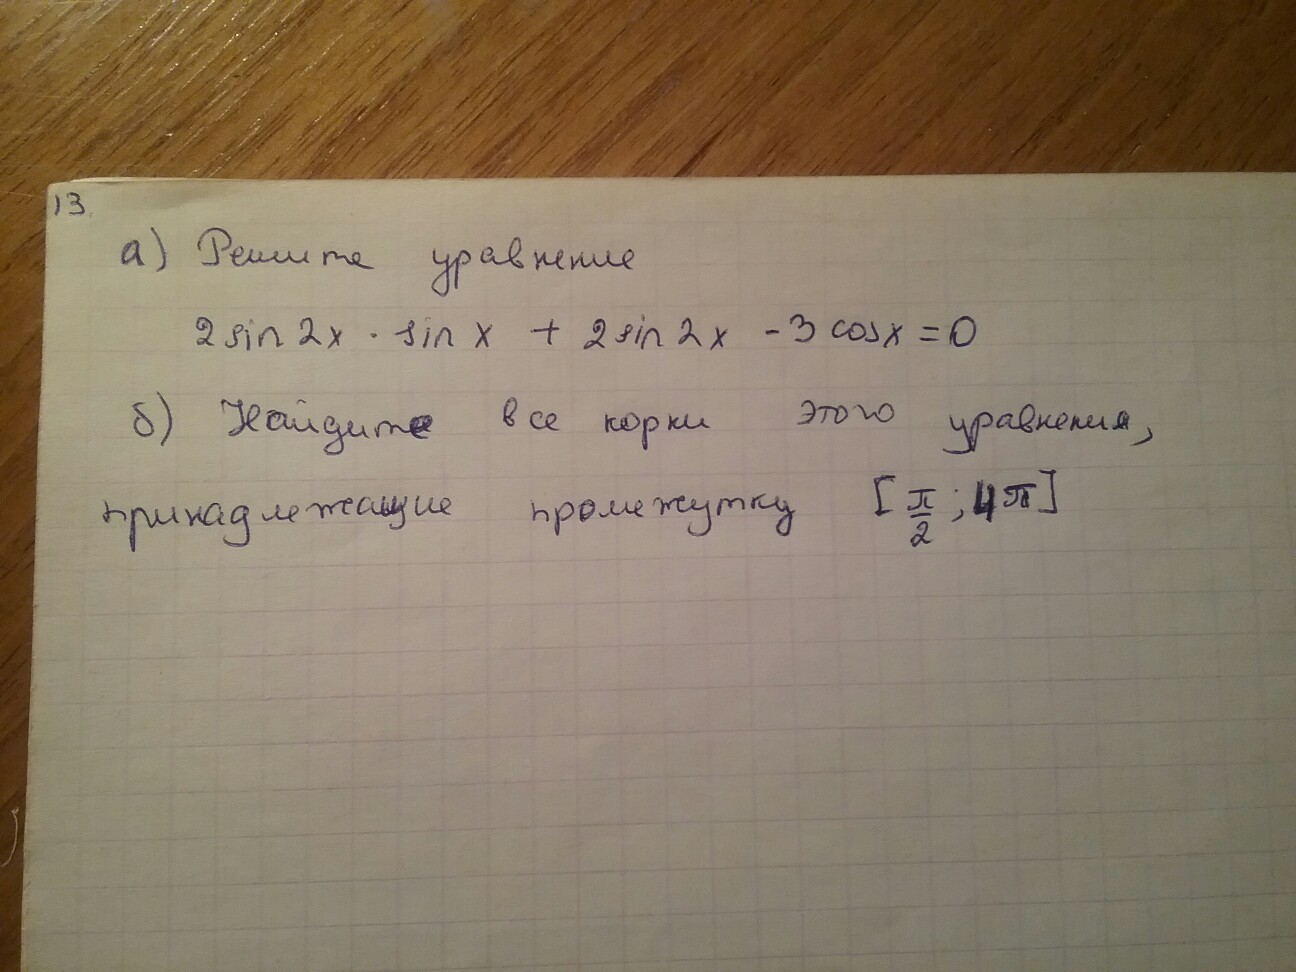 13.
а) Решите уравнение
2 sin 2x · sin x + 2 sin 2x - 3 cos x = 0
б) Найдите все корни этого уравнения,
принадлежащие промежутку [π/2; 4π]